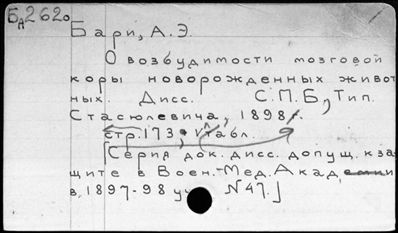 Бд2620
Бари, А.Э.
О возбудимости мозговой
коры новорожденных живот
ных. Дисс. С.П.Б., Тип.
Стасюлевича, 1898.
стр. 173, табл.
[Серия док. дисс. допущ. к за
щите в Воен.-Мед. Акад
в 1897-98 уч. N47.]